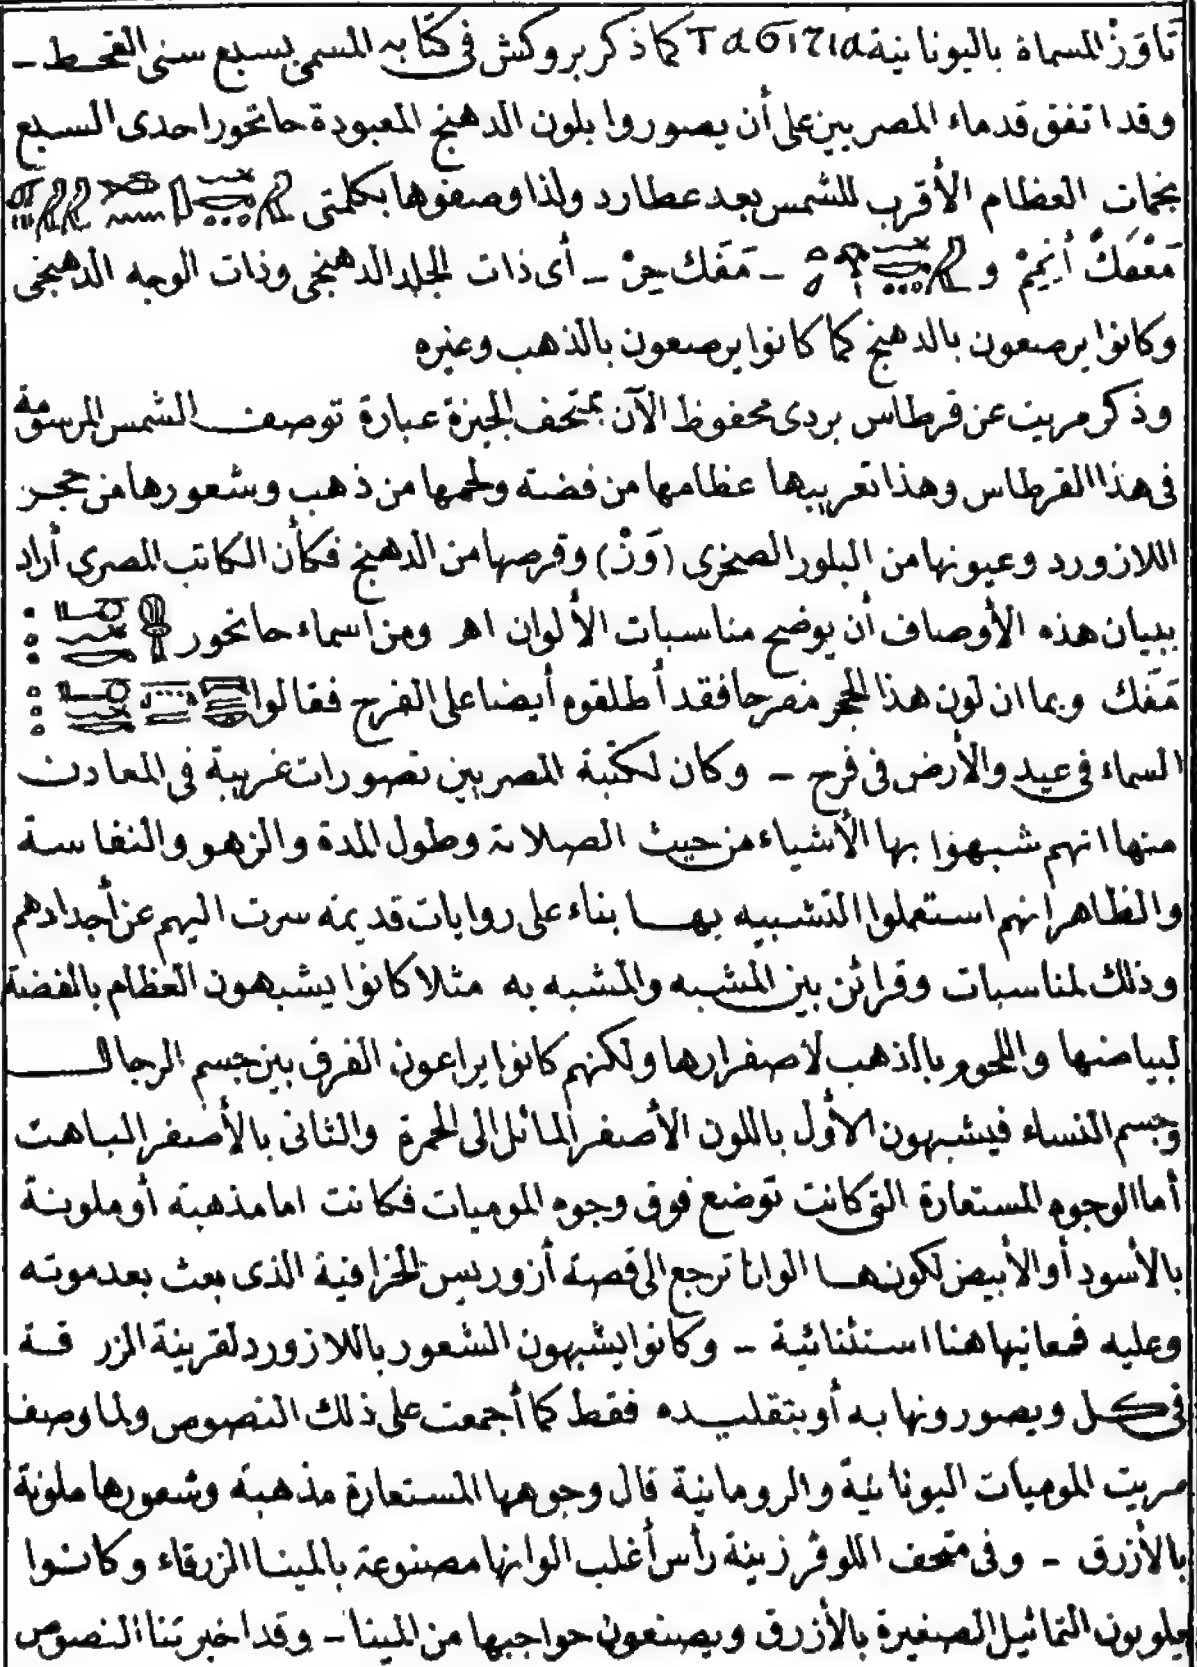 تَاوَزْ المسماة باليونانية Taσιτια كما ذكر بروكش فى كتابه المسمى بسبع سنى القحط ــ
وقد اتفق قدماء المصريين على أن يصوروا بلون الدهنج المعبودة حاتحور احدى السبع
نجمات العظام الأقرب للشمس بعد عطارد ولذا وصفوها بكلمتى
مَفْكَ أَنِيمْ و ــ مَفَك حِرْ ــ أى ذات الجلد الدهنجى وذات الوجه الدهنجى
وكانوا يرصعون بالدهنج كما كانوا يرصعون بالذهب وغيره
وذكر مريت عن قرطاس بردى محفوظ الآن بمتحف الجيزة عبارة توصف الشمس المرسومة
فى هذا القرطاس وهذا تعريبها عظامها من فضة ولحمها من ذهب وشعورها من حجر
اللازورد وعيونها من البلور الصخرى (وَزْ) وقرصها من الدهنج فكأن الكاتب المصرى أراد
ببيان هذه الأوصاف أن يوضح مناسبات الألوان اهـ ومن اسماء حاتحور
مَفَك وبما ان لون هذا الحجر مفرحا فقد أطلقوه أيضا على الفرح فقالوا
السماء فى عيد والأرض فى فرح ــ وكان لكتبة المصريين تصورات غريبة فى المعادن
منها انهم شبهوا بها الأشياء من حيث الصلابة وطول المدة والزهو والنفاسة
والظاهر انهم استعملوا التشبيه بها بناء على روايات قديمة سرت اليهم عن أجدادهم
وذلك لمناسبات وقرائن بين المشبه والمشبه به مثلا كانوا يشبهون العظام بالفضة
لبياضها واللحوم بالذهب لاصفرارها ولكنهم كانوا يراعون الفرق بين جسم الرجال
وجسم النساء فيشبهون الأول باللون الأصفر المائل الى الحمرة والثانى بالأصفر الباهت
أما الوجوه المستعارة التى كانت توضع فوق وجوه الموميات فكانت اما مذهبة أو ملونة
بالأسود أو الأبيض لكونها الوانا ترجع الى قصة أزوريس الخرافية الذى بعث بعد موته
وعليه فمعانيها هنا استثنائية ــ وكانوا يشبهون الشعور باللازورد لقرينة الزرقة
فى كل ويصورونها به أو بتقليده فقط كما أجمعت على ذلك النصوص ولما وصف
مريت الموميات اليونانية والرومانية قال وجوهها المستعارة مذهبة وشعورها ملونة
بالأزرق ــ وفى متحف اللوڤر زينة رأس أغلب الوانها مصنوعة بالمينا الزرقاء وكانوا
يلونون التماثيل الصغيرة بالأزرق ويصنعون حواجبها من المينا ــ وقد اخبرتنا النصوص